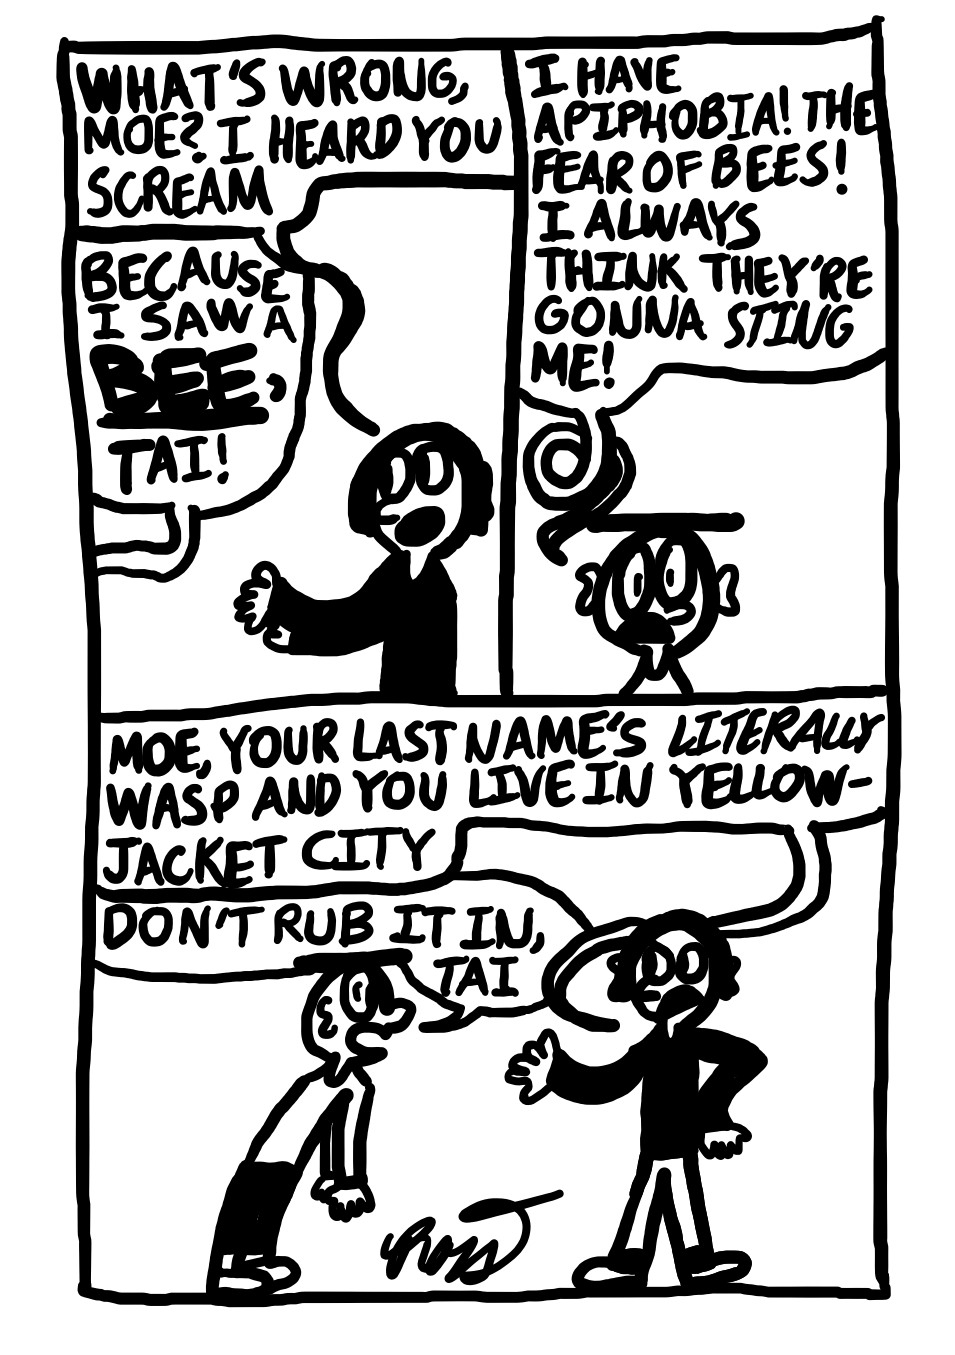 WHAT'S WRONG,
MOE? I HEARD YOU
SCREAM
BECAUSE
I SAW A
BEE,
TAI!
I HAVE
APIPHOBIA! THE
FEAR OF BEES!
I ALWAYS
THINK THEY'RE
GONNA STING
ME!
MOE, YOUR LAST NAME'S LITERALLY
WASP AND YOU LIVE IN YELLOW-
JACKET CITY
DON'T RUB IT IN,
TAI